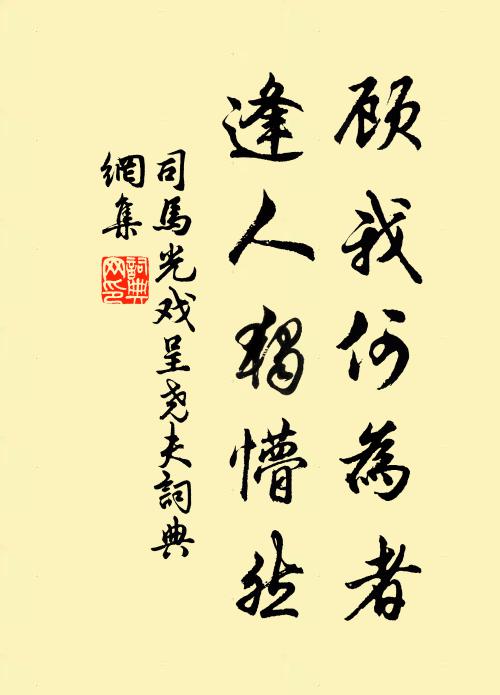 顾我何為者
逢人獨懵然
司馬光戏呈尧夫詞典
網集
詞典
网印